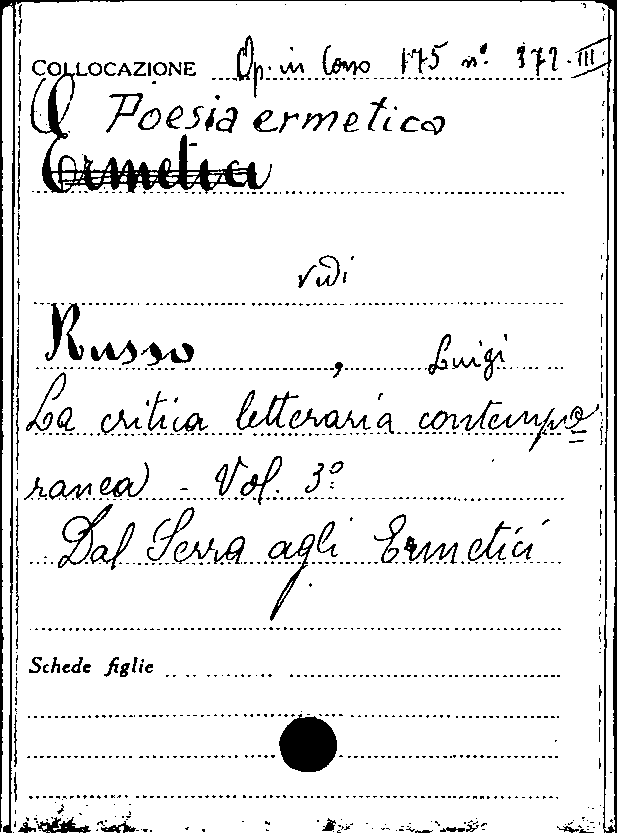 COLLOCAZIONE Op. in Corso 175 n.º 372. III
Poesia ermetica
Ermetici
vedi
Russo, Luigi
La critica letteraria contempo=
ranea - Vol. 3º
Dal Serra agli Ermetici
Schede figlie